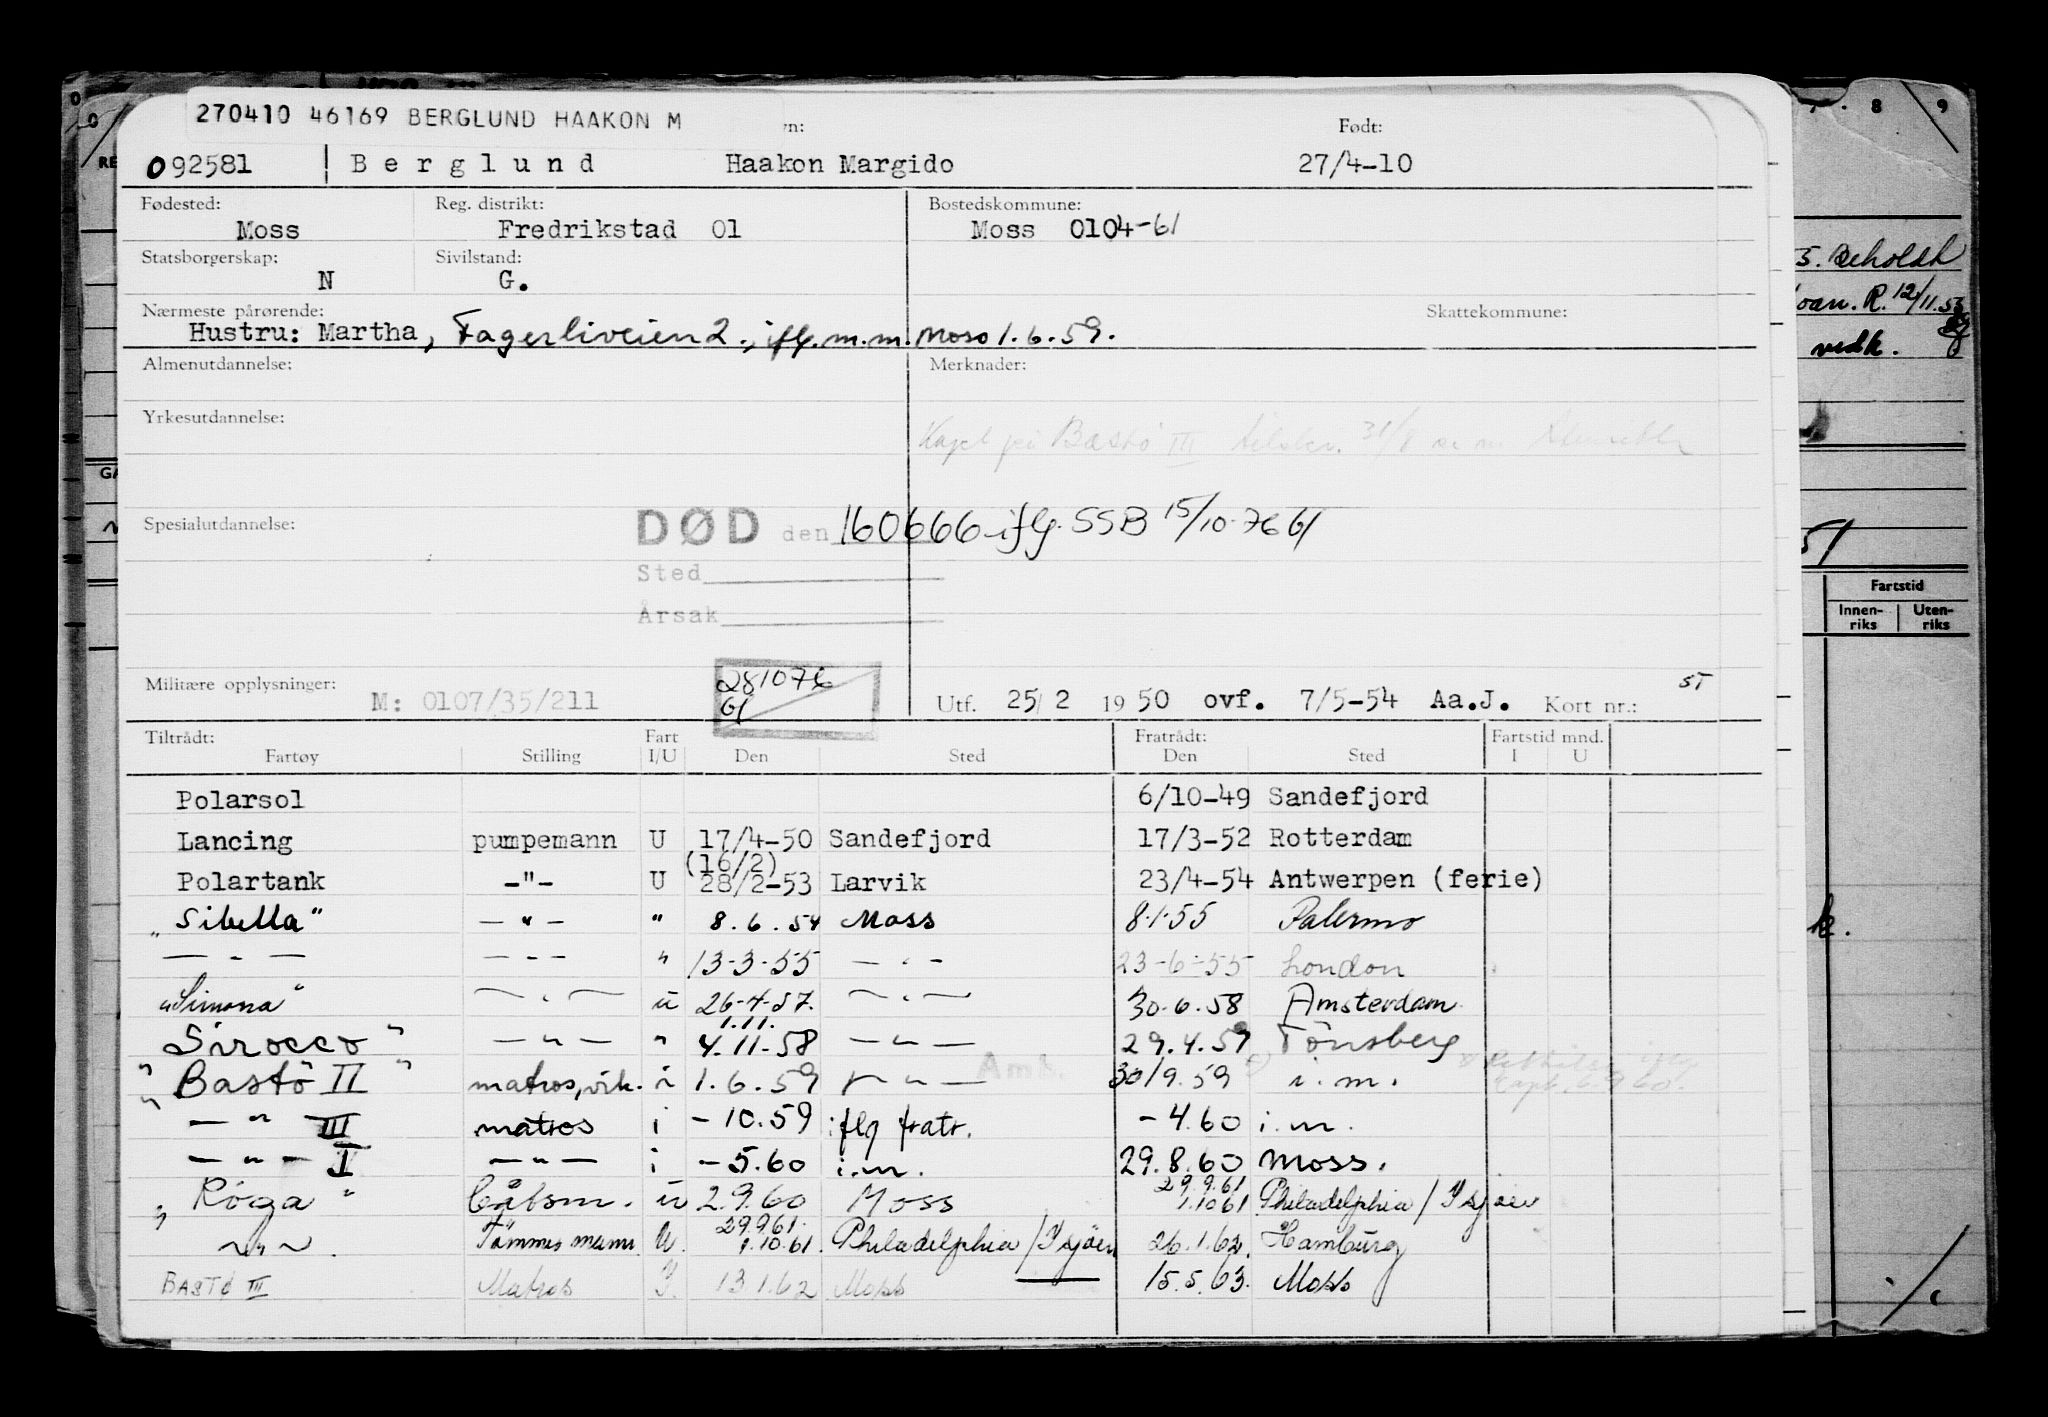 270410 46169 BERGLUND HAAKON M
Født:
092581 Berglund Haakon Margido 27/4-10
Fødested: Reg. distrikt: Bostedskommune:
Moss Fredrikstad 01 Moss 0104-61
Statsborgerskap: Sivilstand:
N G.
Nærmeste pårørende: Skattekommune:
Hustru: Martha, Fagerliveien 2., iflg. m.m. Moss 1.6.59.
Almenutdannelse: Merknader:
Yrkesutdannelse:
Kapt på Bastø III 31/8
Spesialutdannelse: DØD den 160666 iflg. SSB 15/10-76 GJ
Sted
Årsak
Militære opplysninger: M: 0107/35/211
281076
GJ
Utf. 25/2 1950 ovf. 7/5-54 Aa.J. Kort nr.:
ST
Tiltrådt: Fart Fratrådt: Fartstid mnd.
Fartøy Stilling I/U Den Sted Den Sted I U
Polarsol 6/10-49 Sandefjord
Lancing pumpemann U 17/4-50 Sandefjord 17/3-52 Rotterdam
(16/2)
Polartank -"- U 28/2-53 Larvik 23/4-54 Antwerpen (ferie)
"Sibella" -"- " 8.6.54 Moss 8.1.55 Palermo
-"- -"- " 13-3-55 -"- 23-6-55 London
"Simona" -"- u 26-4-57. -"- 30.6.58 Amsterdam
1.11.
"Sirocco" -"- " 4.11-58 -"- 29.4.59 Tönsberg
Amk.
"Bastö II" matros, vik. i 1.6.59 -"- 30/9.59 i.m.
-"- III matros i -10.59 iflg fratr. -4.60 i.m.
-"- I -"- i -5.60 i.m. 29.8.60 Moss.
29.9.61
"Röga" Båtsm. u 2.9.60 Moss 1.10.61 Philadelphia/Isjøen
29.9.61.
-"- Tömmermann U. 1.10.61. Philadelphia/Isjøen 26.1.62. Hamburg
BASTØ III Matros I. 13.1.62 Moss 15.5.63. Moss
8 9
Beholdt
R. 12/11.53
vedk.
51
Fartstid
Innen-riks Uten-riks
k.